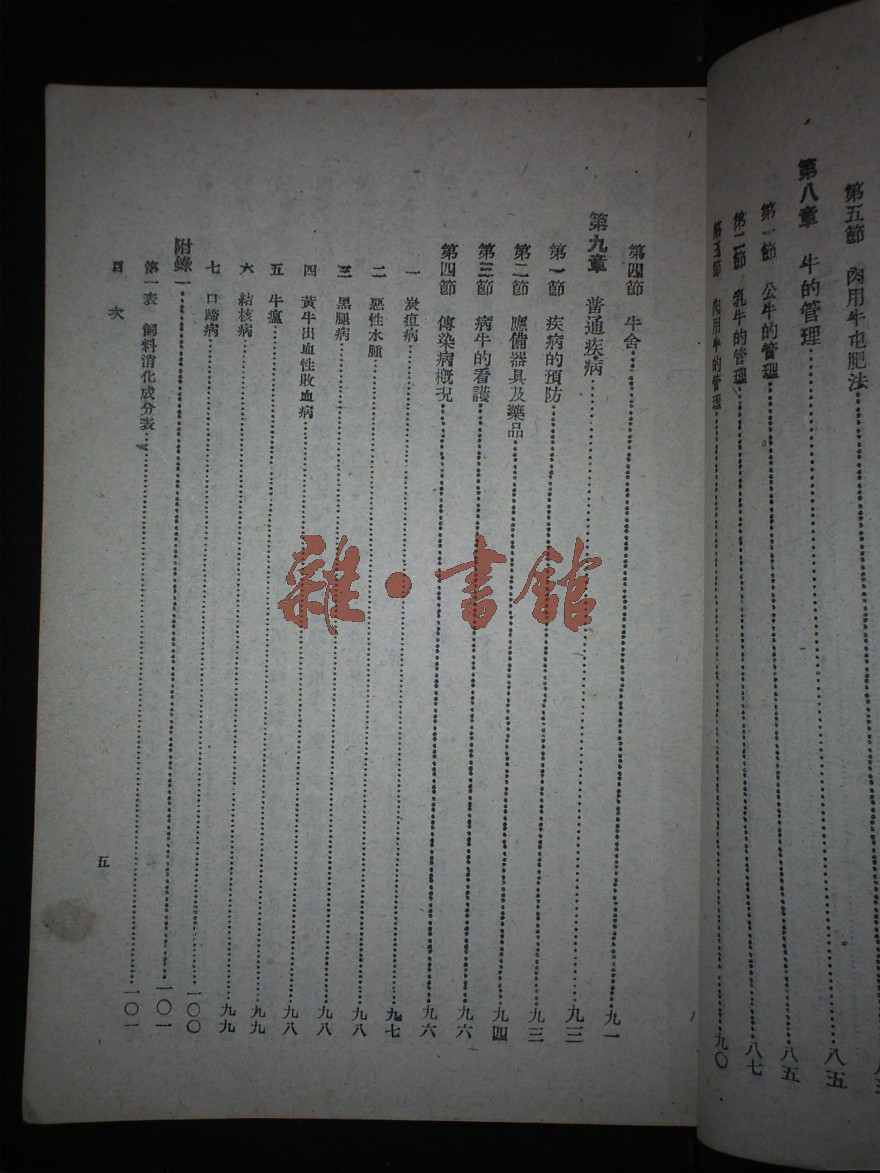 第五節 肉用牛屯肥法……
第八章 牛的管理……八五
第一節 公牛的管理……八五
第二節 乳牛的管理……八七
第三節 肉用牛的管理……九〇
第四節 牛舍……九一
第九章 普通疾病……九三
第一節 疾病的預防……九三
第二節 應備器具及藥品……九四
第三節 病牛的看護……九六
第四節 傳染病概況……九六
一 炭疽病……九七
二 惡性水腫……九八
三 黑腿病……九八
四 黃牛出血性敗血病……九八
五 牛瘟……九九
六 結核病……九九
七 口蹄病……一〇〇
附錄一……一〇一
第一表 飼料消化成分表……一〇一
目次
五
雜·書館